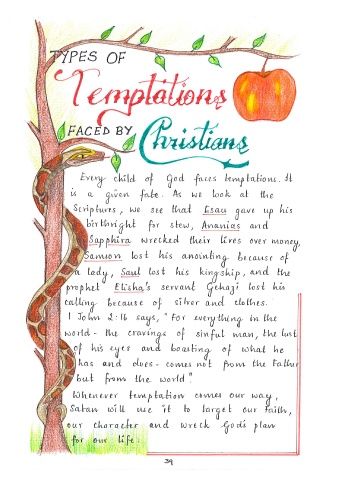 TYPES OF
Temptations
FACED BY
Christians
Every child of God faces temptations. It
is a given fate. As we look at the
Scriptures, we see that Esau gave up his
birthright for stew, Ananias and
Sapphira wrecked their lives over money,
Samson lost his anointing because of
a lady, Saul lost his kingship, and the
prophet Elisha's servant Gehazi lost his
calling because of silver and clothes.
1 John 2:16 says, "For everything in the
world - the cravings of sinful man, the lust
of his eyes and boasting of what he
has and does - comes not from the Father
but from the world."
Whenever temptation comes our way,
Satan will use it to target our faith,
our character and wreck God's plan
for our life.
39